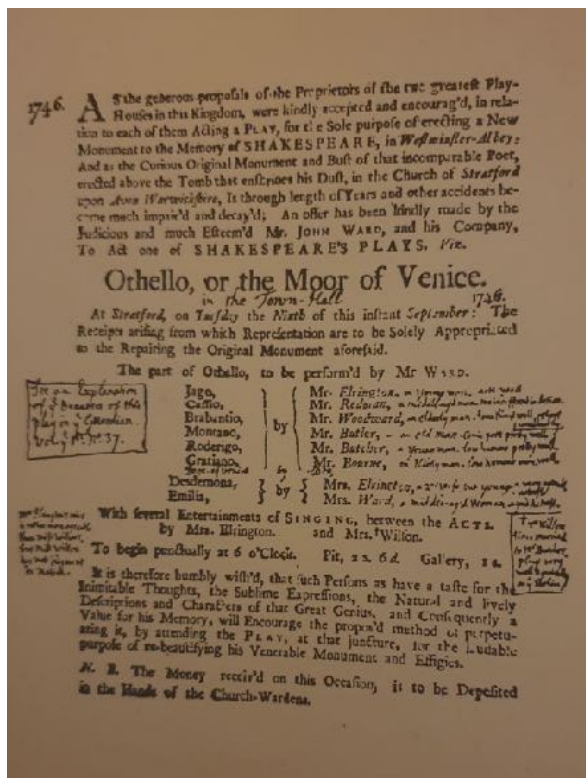 1746.
AS the generous proposals of the Proprietors of the two greatest Play-
Houses in this Kingdom, were kindly accepted and encourag'd, in rela-
tion to each of them Acting a PLAY, for the Sole purpose of erecting a New
Monument to the Memory of SHAKESPEARE, in Westminster-Abbey:
And as the Curious Original Monument and Bust of that incomparable Poet,
erected above the Tomb that enshrines his Dust, in the Church of Stratford
upon Avon Warwickshire, Is through length of Years and other accidents be-
come much impair'd and decay'd; An offer has been kindly made by the
Judicious and much Esteem'd Mr. JOHN WARD, and his Company,
To Act one of SHAKESPEARE'S PLAYS, Viz.
Othello, or the Moor of Venice.
in the Town-Hall 1746.
At Stratford, on Tuesday the Ninth of this instant September: The
Receipts arising from which Representation are to be Solely Appropriated
to the Repairing the Original Monument aforesaid.
The part of Othello, to be perform'd by Mr WARD.
Jago, Mr. Elrington,
Cassio, Mr. Redman,
Brabantio, Mr. Woodward,
Montano, by Mr. Butler,
Roderigo, Mr. Butcher,
Gratiano, Mr. Bourne,
Desdemona, by Mrs. Elrington,
Emilia, Mrs. Ward,
See an Explanation
of the Beauties of this
play in the Guardian.
Vol. No. 37.
With several Entertainments of SINGING, between the ACTS
by Mrs. Elrington. and Mrs. Wilson.
To begin punctually at 6 o'Clock. Pit, 2s. 6d. Gallery, 1s.
It is therefore humbly wish'd, that such Persons as have a taste for the
Inimitable Thoughts, the Sublime Expressions, the Natural and lively
Descriptions and Characters of that Great Genius, and Consequently a
Value for his Memory, will Encourage the propos'd method of perpetu-
ating it, by attending the PLAY, at that juncture, for the laudable
purpose of re-beautifying his Venerable Monument and Effigies.
N. B. The Money receiv'd on this Occasion, is to be Deposited
in the Hands of the Church-Wardens.